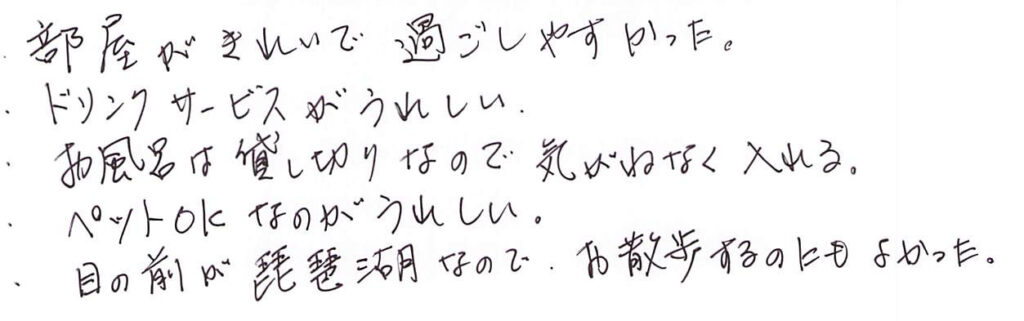 ・部屋がきれいで過ごしやすかった。
・ドリンクサービスがうれしい.
・お風呂は貸し切りなので気がねなく入れる。
・ペットOKなのがうれしい。
・目の前が琵琶湖なので、お散歩するのにもよかった。